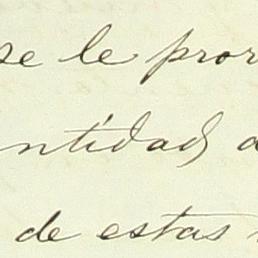 se le pror
ntidad a
de estas